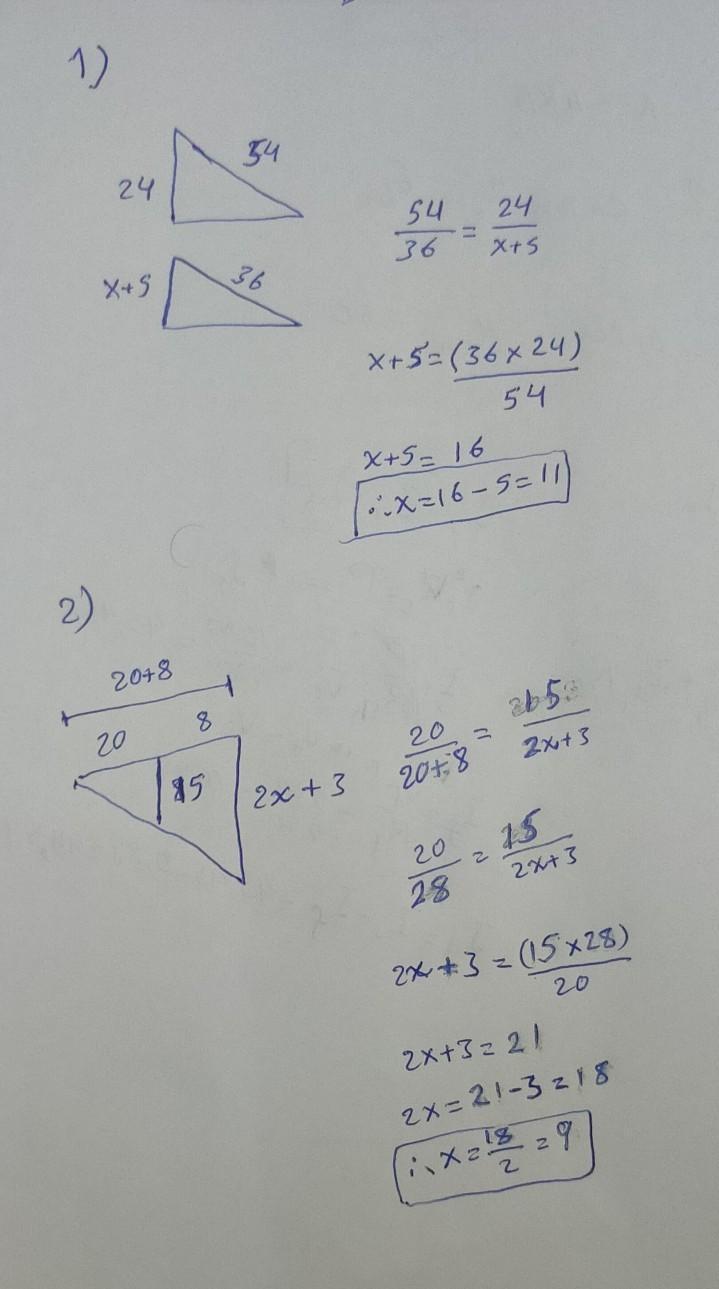 1)
54
24
54/36 = 24/x+5
x+5
36
x+5 = (36 x 24)/54
x+5 = 16
∴ x = 16 - 5 = 11
2)
20+8
20 8
15 2x + 3
20/20+8 = 15/2x+3
20/28 = 15/2x+3
2x + 3 = (15 x 28)/20
2x+3 = 21
2x = 21-3 = 18
∴ x = 18/2 = 9